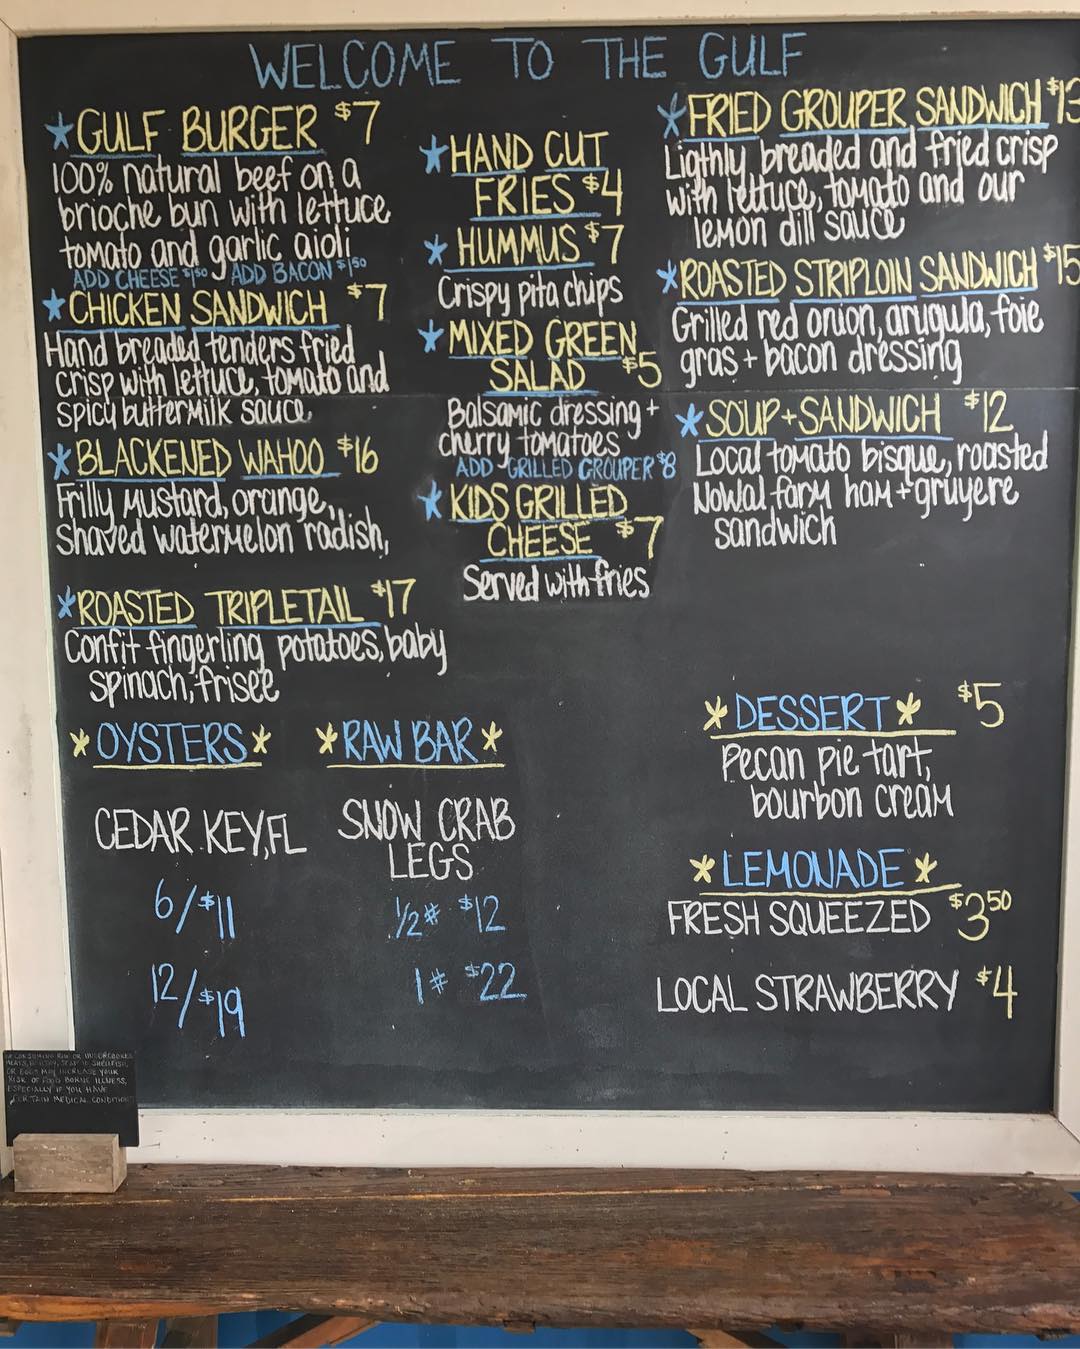 WELCOME TO THE GULF
GULF BURGER $7
100% natural beef on a
brioche bun with lettuce
tomato and garlic aioli
ADD CHEESE $1.50 ADD BACON $1.50
CHICKEN SANDWICH $7
Hand breaded tenders fried
crisp with lettuce, tomato and
spicy buttermilk sauce,
BLACKENED WAHOO $16
Frilly mustard, orange,
shaved watermelon radish,
ROASTED TRIPLETAIL $17
Confit fingerling potatoes, baby
spinach, frisee
HAND CUT
FRIES $4
HUMMUS $7
Crispy pita chips
MIXED GREEN
SALAD $5
Balsamic dressing +
cherry tomatoes
ADD GRILLED GROUPER $8
KIDS GRILLED
CHEESE $7
Served with fries
FRIED GROUPER SANDWICH $13
Ligthly breaded and fried crisp
with lettuce, tomato and our
lemon dill sauce
ROASTED STRIPLOIN SANDWICH $15
Grilled red onion, arugula, foie
gras + bacon dressing
SOUP + SANDWICH $12
Local tomato bisque, roasted
Nowal farm ham + gruyere
sandwich
*OYSTERS*
CEDAR KEY, FL
6/$11
12/$19
*RAW BAR*
SNOW CRAB
LEGS
1/2# $12
1# $22
*DESSERT* $5
Pecan pie tart,
bourbon cream
*LEMONADE*
FRESH SQUEEZED $3.50
LOCAL STRAWBERRY $4
CONSUMING RAW OR UNDERCOOKED
MEATS, POULTRY, SEAFOOD SHELLFISH,
OR EGGS MAY INCREASE YOUR
RISK OF FOOD BORNE ILLNESS,
ESPECIALLY IF YOU HAVE
CERTAIN MEDICAL CONDITIONS